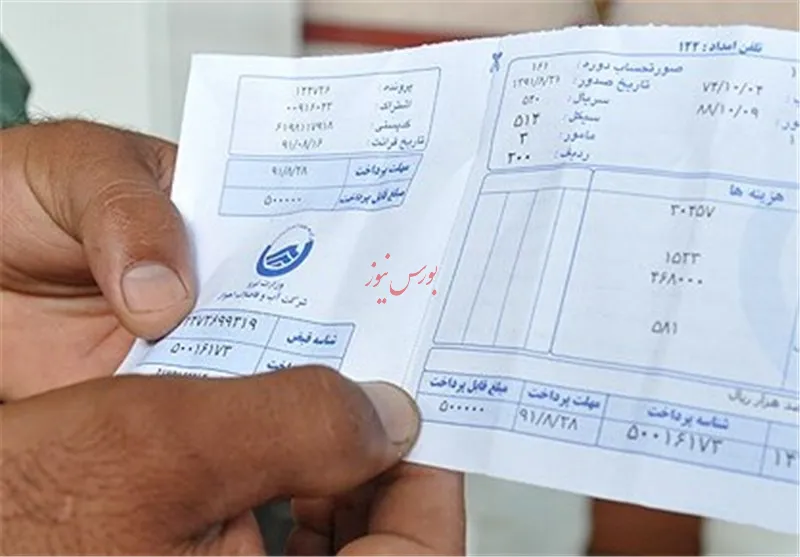 تلفن امداد : ۱۲۲
صورتحساب دوره : ۱۶۱
تاریخ صدور : ۱۳۹۱/۸/۲۱
سریال : ۵۴۰
سیکل : ۵۱۲
مامور : ۳
ردیف : ۳۰۰
۷۴/۱۰/۰۲
۸۸/۱۰/۰۹
هزینه ها
۳۰۴۵۷
۱۵۲۳
۴۶۸۰۰۰
۵۸۱
هزار ریال
شناسه پرداخت مهلت پرداخت مبلغ قابل پرداخت
۵۰۰۱۶۱۷۳ ۹۱/۸/۲۸ ۵۰۰۰۰۰
پرونده : ۱۲۲۷۲۶
اشتراک : ۰۰۹۱۶۰۲۳
کدپستی : ۶۱۹۸۱۱۷۹۱۸
تاریخ قرائت : ۹۱/۰۸/۱۶
مهلت پرداخت ۹۱/۸/۲۸
مبلغ قابل پرداخت ۵۰۰۰۰۰
وزارت نیرو
شرکت آب و فاضلاب اهواز
شناسه قبض ۲۷۲۶۹۹۳۱۹
پرداخت ۵۰۰۱۶۱۷۳
بورس نیوز